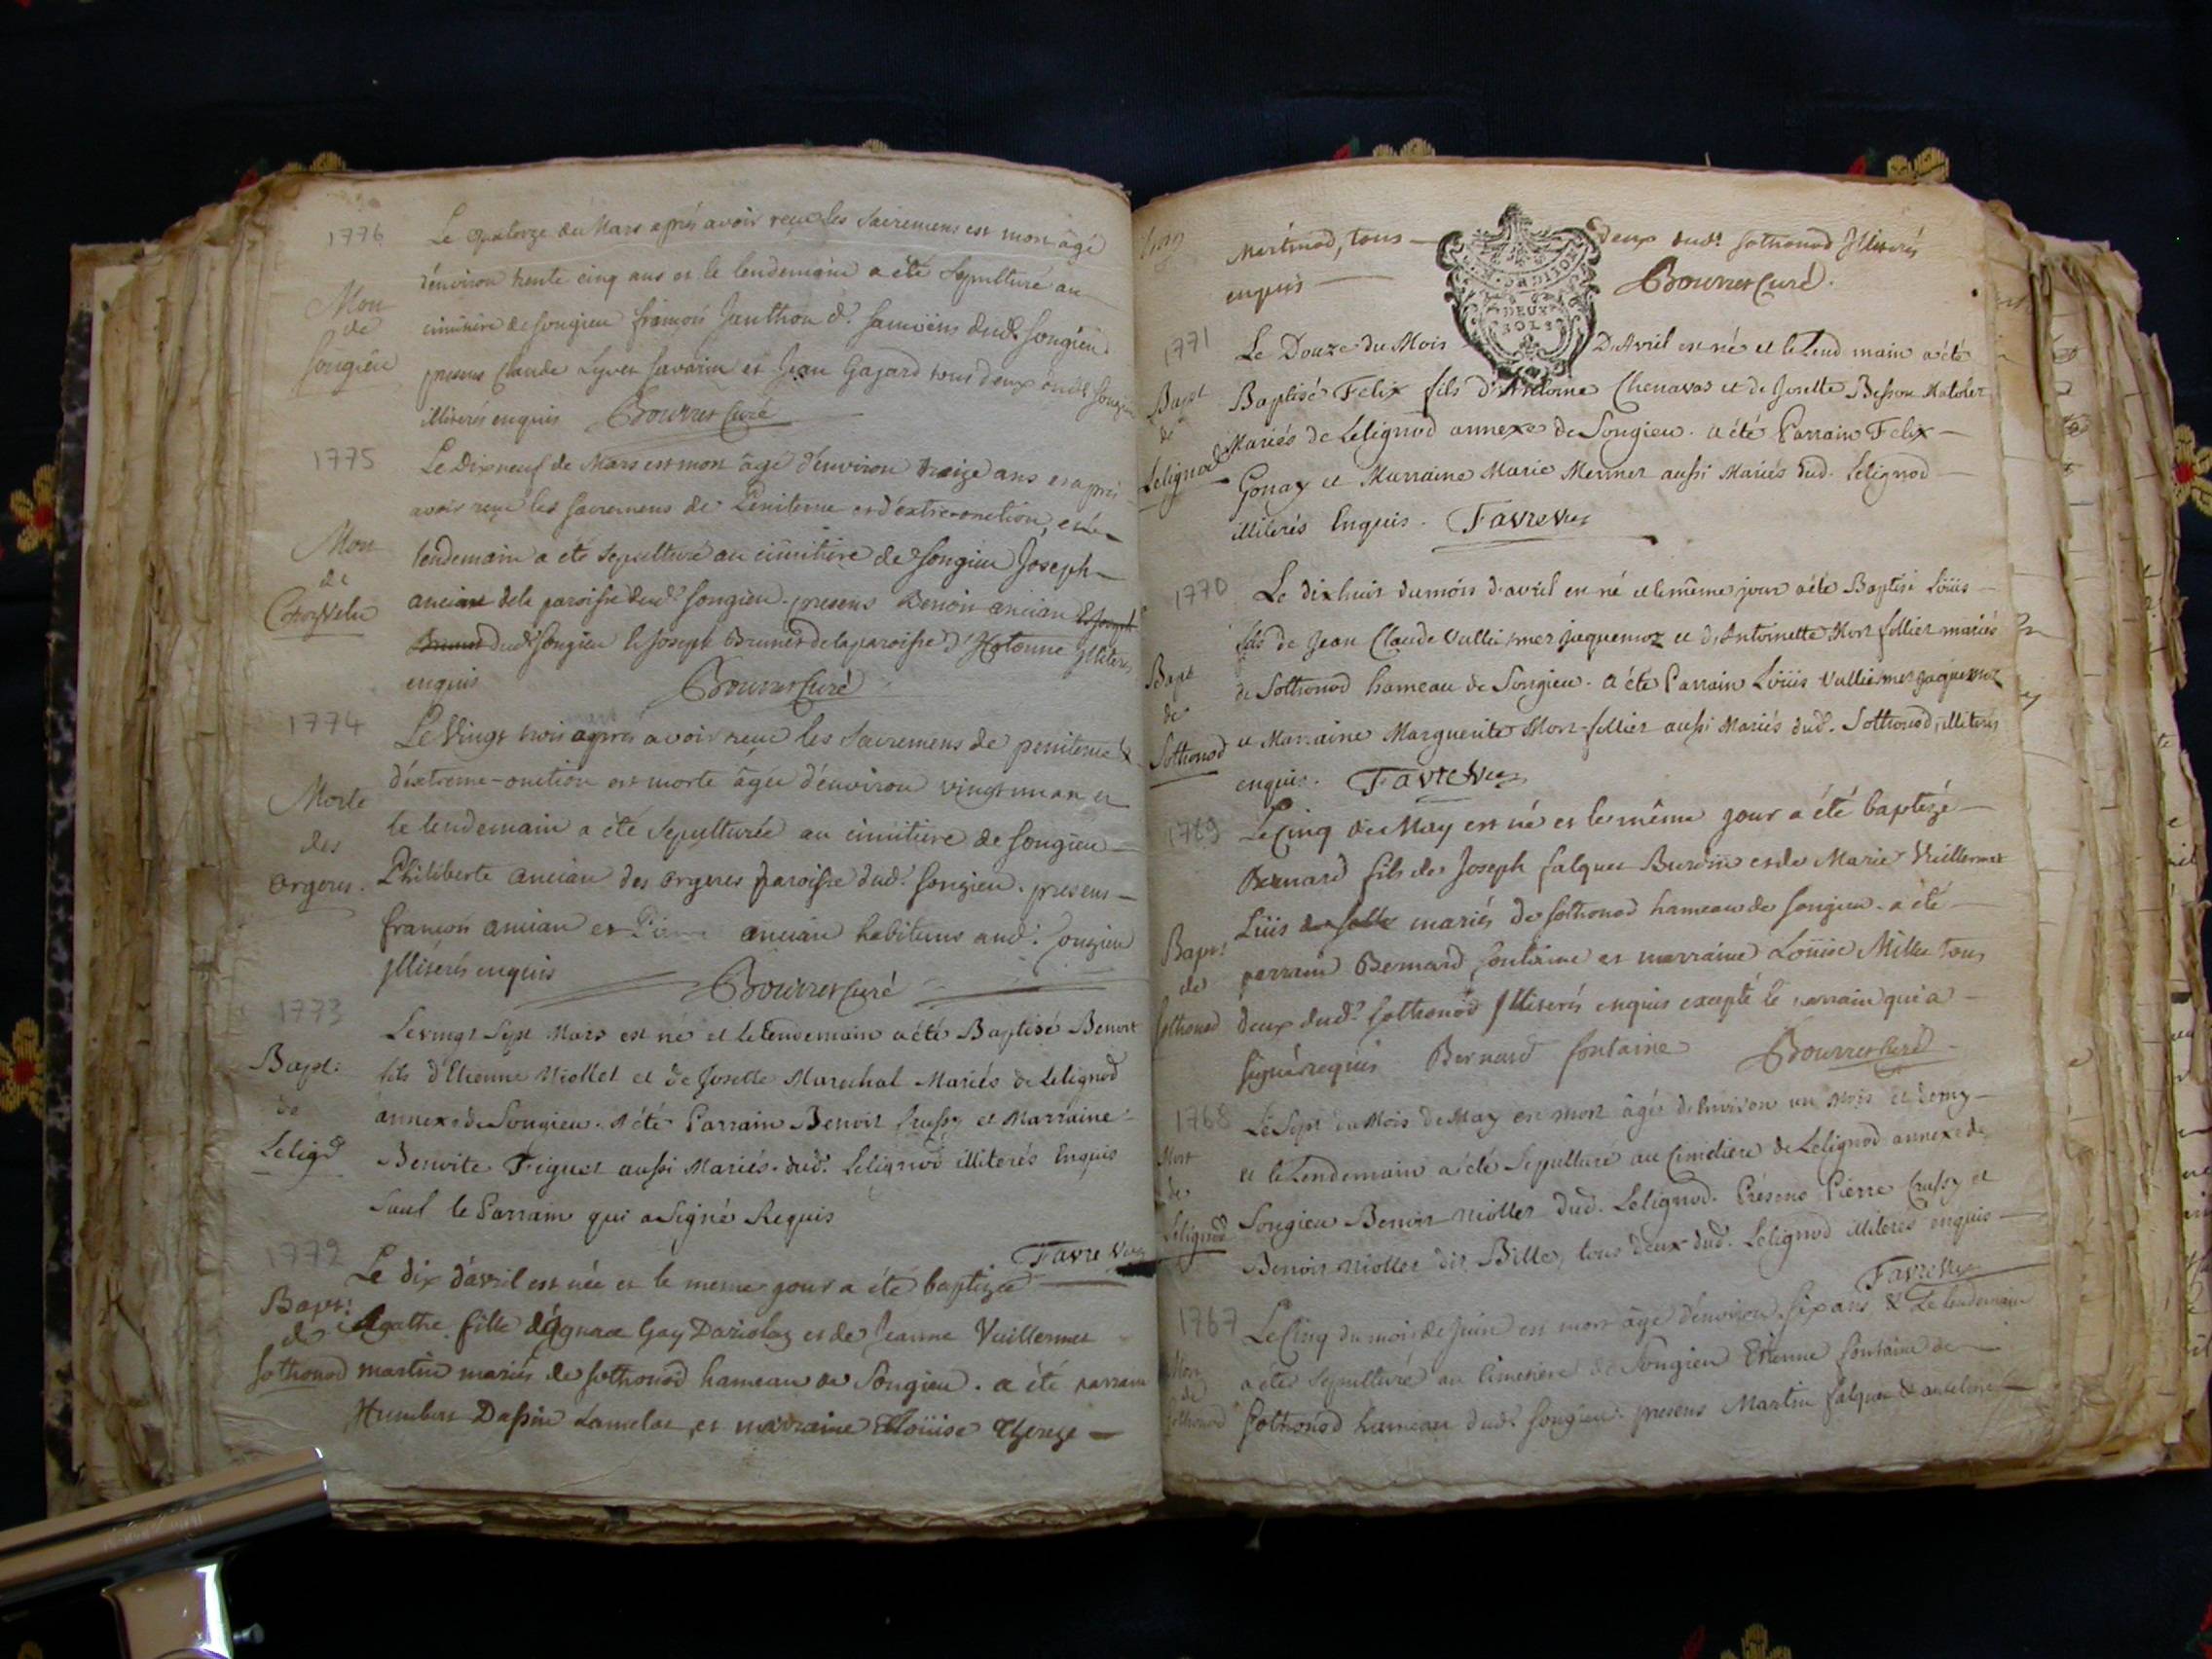 1776
Le quatorze du Mars après avoir reçu les Sacremens est mort âgé
Mort d'environ trente cinq ans et le lendemain a été Sepulturé au
de cimitière de Songieu françois Janthon d. Samoëns dud. Songieu
Songieu presens Claude Lyvet Savarin et Jean Gajard tous deux dud. Songieu
illiterés enquis Bourret Curé
1775
Le Dixneuf de Mars est mort âgé d'environ treize ans et après
avoir reçu les sacremens de Penitence et d'extreme-onction, et le
Mort lendemain a été sepulturé au cimitière de Songieu Joseph
de ancian dela paroisse dud. Songieu. presens Benoit ancian
dud. Songieu & Joseph Brunet de la paroisse d'Hotonne illiterés
enquis Bourret Curé
1774
Le Vingt trois après avoir reçu les Sacremens de penitence &
d'extreme-onction est morte âgée d'environ vingt un an et
Morte le lendemain a été Sepulturée au cimitiere de Songieu
des
orgeres. Philiberte ancian des orgeres paroisse dud. Songieu. presens
françois ancian et ancian habitans aud. Songieu
illiterés enquis Bourret Curé
1773
Le vingt Sept Mars est né et le lendemain a été Baptisé Benoit
Bapt: fils d'Etienne Niollet et de Josette Marechal Mariés de Lelignod
de annexe de Songieu. A été Parrain Benoit Crussy et Marraine
Leligd Benoite Figuet aussi Mariés dud. Lelignod illiterés Enquis
Sauf le Parrain qui a Signé Requis
Favre Vic
1772
Le dix d'avril est née et le meme jour a été baptizée
Bapt: Agathe fille d'ignace Gay Dariolaz et de Jeanne Vuillermet
de
Sothonod martin mariés de Sothonod hameau de Songieu. a été parrain
Humbert Dassin Lamelaz, et marraine Loüise Thereze
Mertinod, tous deux dud. Sothonod Illiterés
enquis Bourret Curé.
DEUX
SOLS
1771
Le Douze du Mois D'Avril est né et le Lendmain a été
Bapt Baptisé Felix fils d'Antoine Chenavas et de Josette Besson Matolet
de
Lelignod Mariés de Lelignod annexe de Songieu. a été Parrain Felix
Gonay et Marraine Marie Mermet aussi Mariés dud. Lelignod
illiterés Enquis. Favre Vic
1770
Le dixhuit du mois d'avril est né et le même jour a été Baptisé Loüis
fils de Jean Claude Vulliermet Jaquemoz et d'Antoinette Mort fellier mariés
Bapt de Sothonod hameau de Songieu. a été Parrain Loüis Vulliermet Jaquemoz
de
Sothonod et Marraine Marguerite Mort-fellier aussi Mariés dud. Sothonod, illiterés
enquis. Favre Vic
1769
Le Cinq de May est né et le même jour a été baptizé
Bernard fils de Joseph falquet Burdin et de Marie Vuillermet
Luis mariés de Sothonod hameau de Songieu. a été
Bapt: parrain Bernard fontaine et marraine Loüise Millet tous
de
Sothonod deux dud. Sothonod Illiterés enquis excepté le parrain qui a
signé requis Bernard fontaine Bourret Curé
1768
Le Sept du Mois de May est mort âgé d'Environ un Mois et demy
Mort et le Lendemain a été Sepulturé au Cimetiere de Lelignod annexe de
de
Lelignod Songieu Benoit Niollet dud. Lelignod. Présens Pierre Crussy et
Benoit Niollet dit Bille, tous deux dud. Lelignod illiterés enquis
Favre Vic
1767
Le Cinq du mois de Juin est mort âgé d'environ six ans & Le lendemain
Mort a été Sepulturé au Cimetiere de Songieu Etienne fontaine de
de
Sothonod Sothonod hameau dud. Songieu. presens Martin falquet &